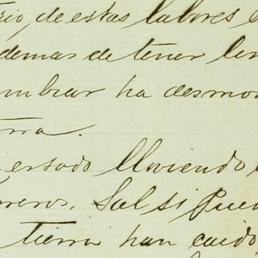 rio, de estas labores
demas de tener
mbiar ha desmo
rra.
estado lloviendo
reros. Sal si Pue
tierra han caido,